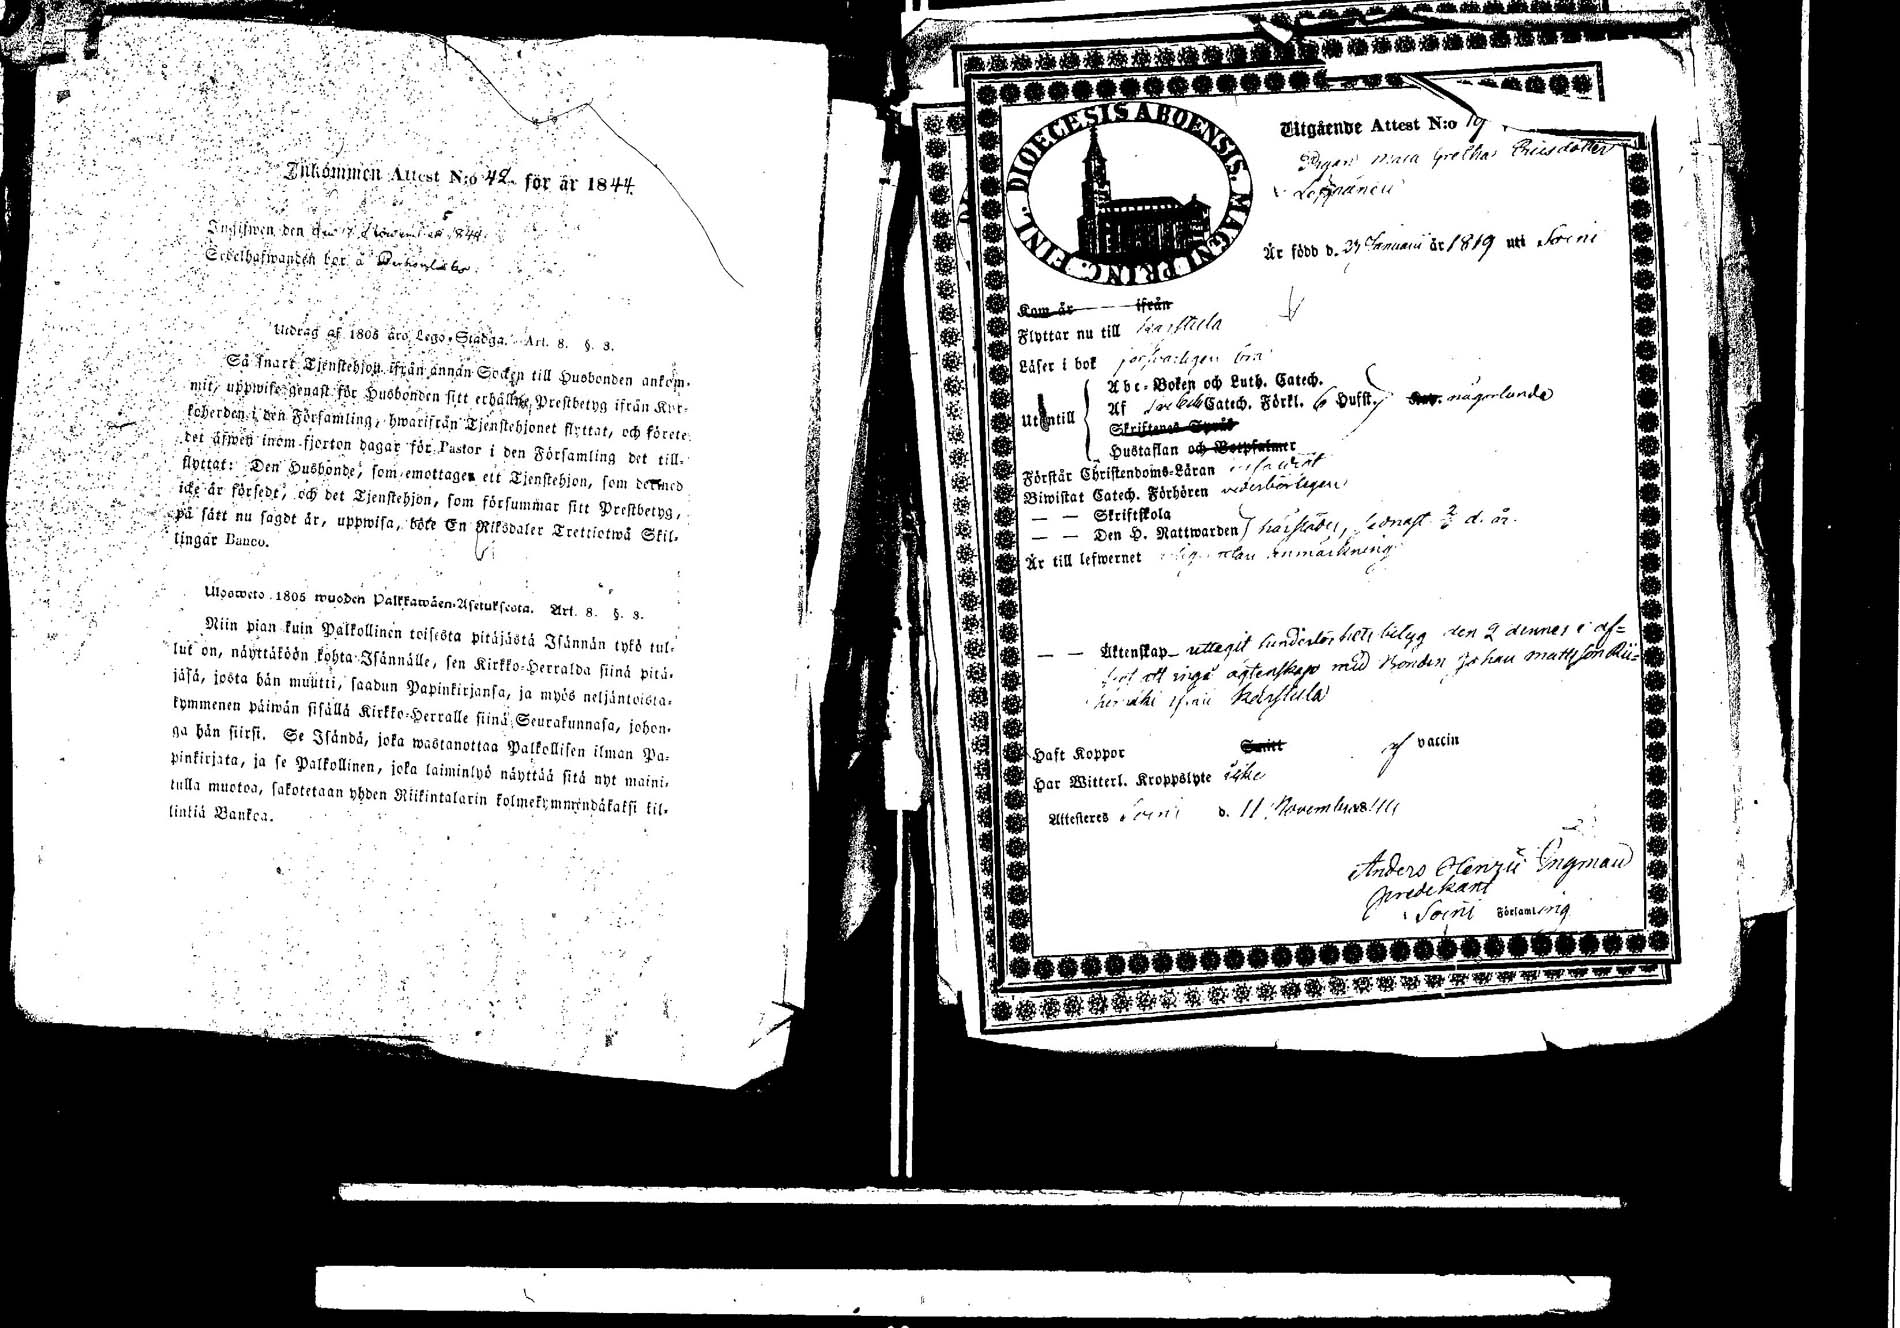 Inkommen Attest N:o 42 för år 1844.
Ingifwen den November 1844.
Sedelhafwanden bor å
Utdrag af 1805 års Lego-Stadga. Art. 8. §. 3.
Så snart Tjenstehjon ifrån annan Socken till Husbonden ankom-
mit, uppwise genast för Husbonden sitt erhållne Prestbetyg ifrån Kyr-
koherden i den Församling, hwarifrån Tjenstehjonet flyttat, och förete
det äfwen inom fjorton dagar för Pastor i den Församling det till-
flyttat: Den Husbonde, som emottager ett Tjenstehjon, som dermed
icke är försedt, och det Tjenstehjon, som försummar sitt Prestbetyg,
på sätt nu sagdt är, uppwisa, böte En Riksdaler Trettiotwå Skil-
lingar Banco.
Ulosweto 1805 wuoden Palkkawäen-Asetuksesta. Art. 8. §. 3.
Niin pian kuin Palkollinen toisesta pitäjästä Isännän tykö tul-
lut on, näyttäköön kohta Isännälle, sen Kirkko-Herralda siinä pitä-
jäsä, josta hän muutti, saadun Papinkirjansa, ja myös neljäntoista-
kymmenen päiwän sisällä Kirkko-Herralle siinä Seurakunnasa, johon-
ga hän siirsi. Se Isändä, joka wastanottaa Palkollisen ilman Pa-
pinkirjata, ja se Palkollinen, joka laiminlyö näyttää sitä nyt maini-
tulla muotoa, sakotetaan yhden Riikintalarin kolmekymmendäkaksi kil-
lintiä Bankoa.
DIOECESIS ABOENSIS. MAGNI PRINC. FINL.
Utgående Attest N:o 19
Pigan Maria Gretha Ericsdotter
Är född d. 27 Januarii år 1819 uti Soini
Kom år ifrån
Flyttar nu till Karstula
Läser i bok försvarligen bra
Utantill
Abc-Boken och Luth. Catech.
Af Catech. Förkl. 6 Hufst. någorlunda
Skriftenes Språk
Hustaflan och Botpsalmer
Förstår Christendoms-Läran
Biwistat Catech. Förhören vederbörligen
— — Skriftskola
— — Den H. Nattwarden härstädes, sednast d. år.
Är till lefwernet utan anmärkning
— — Äktenskap uttagit hinderlöshets betyg den 2 dennes i af-
att ingå äktenskap med Bonden Johan Mattsson
ifrån Karstula
Haft Koppor Smitt af vaccin
Har Witterl. Kroppslyte icke
Attesteras Soini d. 11 November 1844
Anders Henric Ingman
Predikant
i Soini Församling